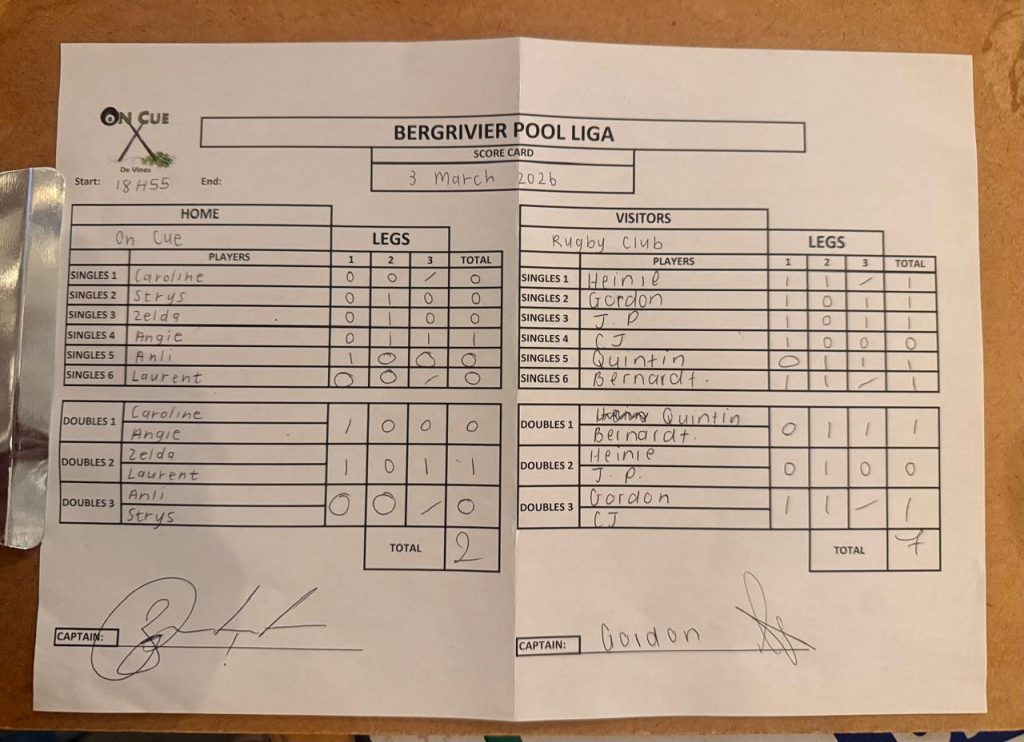 ON CUE
De Vines
BERGRIVIER POOL LIGA
SCORE CARD
3 March 2026
Start: 18H55 End:
HOME
On Cue LEGS
PLAYERS 1 2 3 TOTAL
SINGLES 1 Caroline 0 0 / 0
SINGLES 2 Strys 0 1 0 0
SINGLES 3 Zelda 0 1 0 0
SINGLES 4 Angie 0 1 1 1
SINGLES 5 Anli 1 0 0 0
SINGLES 6 Laurent 0 0 / 0
DOUBLES 1 Caroline
Angie 1 0 0 0
DOUBLES 2 Zelda
Laurent 1 0 1 1
DOUBLES 3 Anli
Strys 0 0 / 0
TOTAL 2
CAPTAIN:
VISITORS
Rugby Club LEGS
PLAYERS 1 2 3 TOTAL
SINGLES 1 Heinie 1 1 / 1
SINGLES 2 Gordon 1 0 1 1
SINGLES 3 J.P 1 0 1 1
SINGLES 4 CJ 1 0 0 0
SINGLES 5 Quintin 0 1 1 1
SINGLES 6 Bernardt. 1 1 / 1
DOUBLES 1 Quintin
Bernardt. 0 1 1 1
DOUBLES 2 Heinie
J.P. 0 1 0 0
DOUBLES 3 Gordon
CJ 1 1 / 1
TOTAL 7
CAPTAIN: Gordon